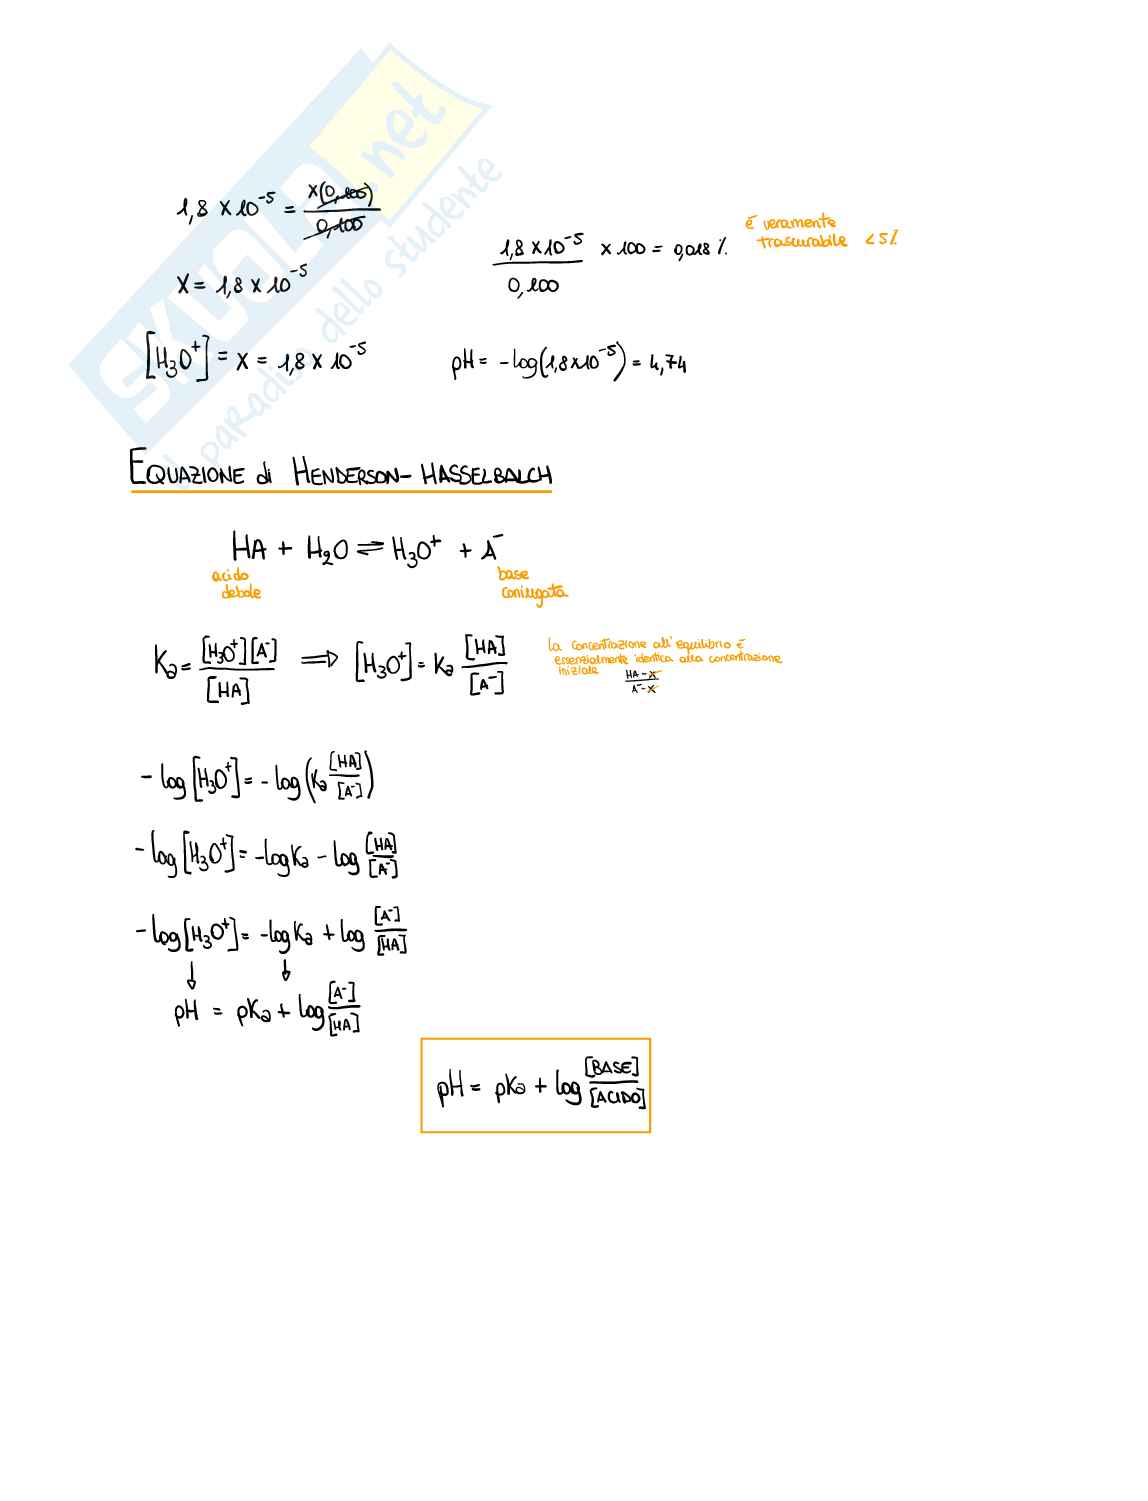 SKUOLA.net
il paradiso dello studente
1,8 x 10⁻⁵ = x(0,100) / 0,100
è veramente
trascurabile < 5%
1,8 x 10⁻⁵ / 0,100 x 100 = 0,018 %
x = 1,8 x 10⁻⁵
[H₃O⁺] = x = 1,8 x 10⁻⁵
pH = - log(1,8x10⁻⁵) = 4,74
EQUAZIONE di HENDERSON-HASSELBALCH
HA + H₂O ⇌ H₃O⁺ + A⁻
acido
debole
base
coniugata
Ka = [H₃O⁺][A⁻] / [HA] ⟹ [H₃O⁺] = Ka [HA] / [A⁻]
la concentrazione all'equilibrio è
essenzialmente identica alla concentrazione
iniziale
HA - x / A⁻ - x
- log[H₃O⁺] = - log(Ka [HA] / [A⁻])
- log[H₃O⁺] = -logKa - log [HA] / [A⁻]
- log[H₃O⁺] = -logKa + log [A⁻] / [HA]
↓ ↓
pH = pKa + log [A⁻] / [HA]
pH = pKa + log [BASE] / [ACIDO]